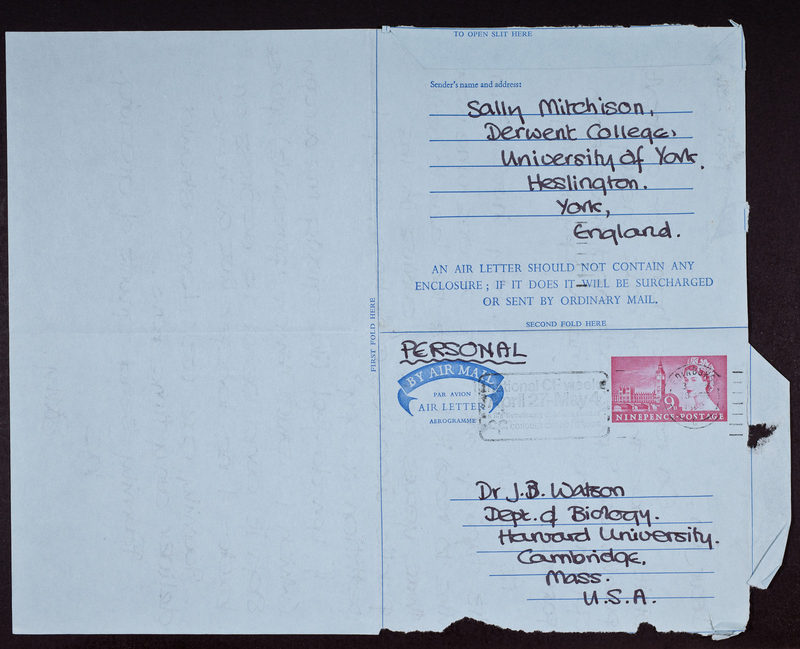 TO OPEN SLIT HERE
Sender's name and address:
Sally Mitchison,
Derwent College,
University of York.
Heslington.
York,
England.
AN AIR LETTER SHOULD NOT CONTAIN ANY
ENCLOSURE; IF IT DOES IT WILL BE SURCHARGED
OR SENT BY ORDINARY MAIL.
SECOND FOLD HERE
FIRST FOLD HERE
PERSONAL
BY AIR MAIL
PAR AVION
AIR LETTER
AEROGRAMME
9
NINEPENCE·POSTAGE
Dr J.B. Watson
Dept. of Biology.
Harvard University.
Cambridge.
Mass.
U.S.A.